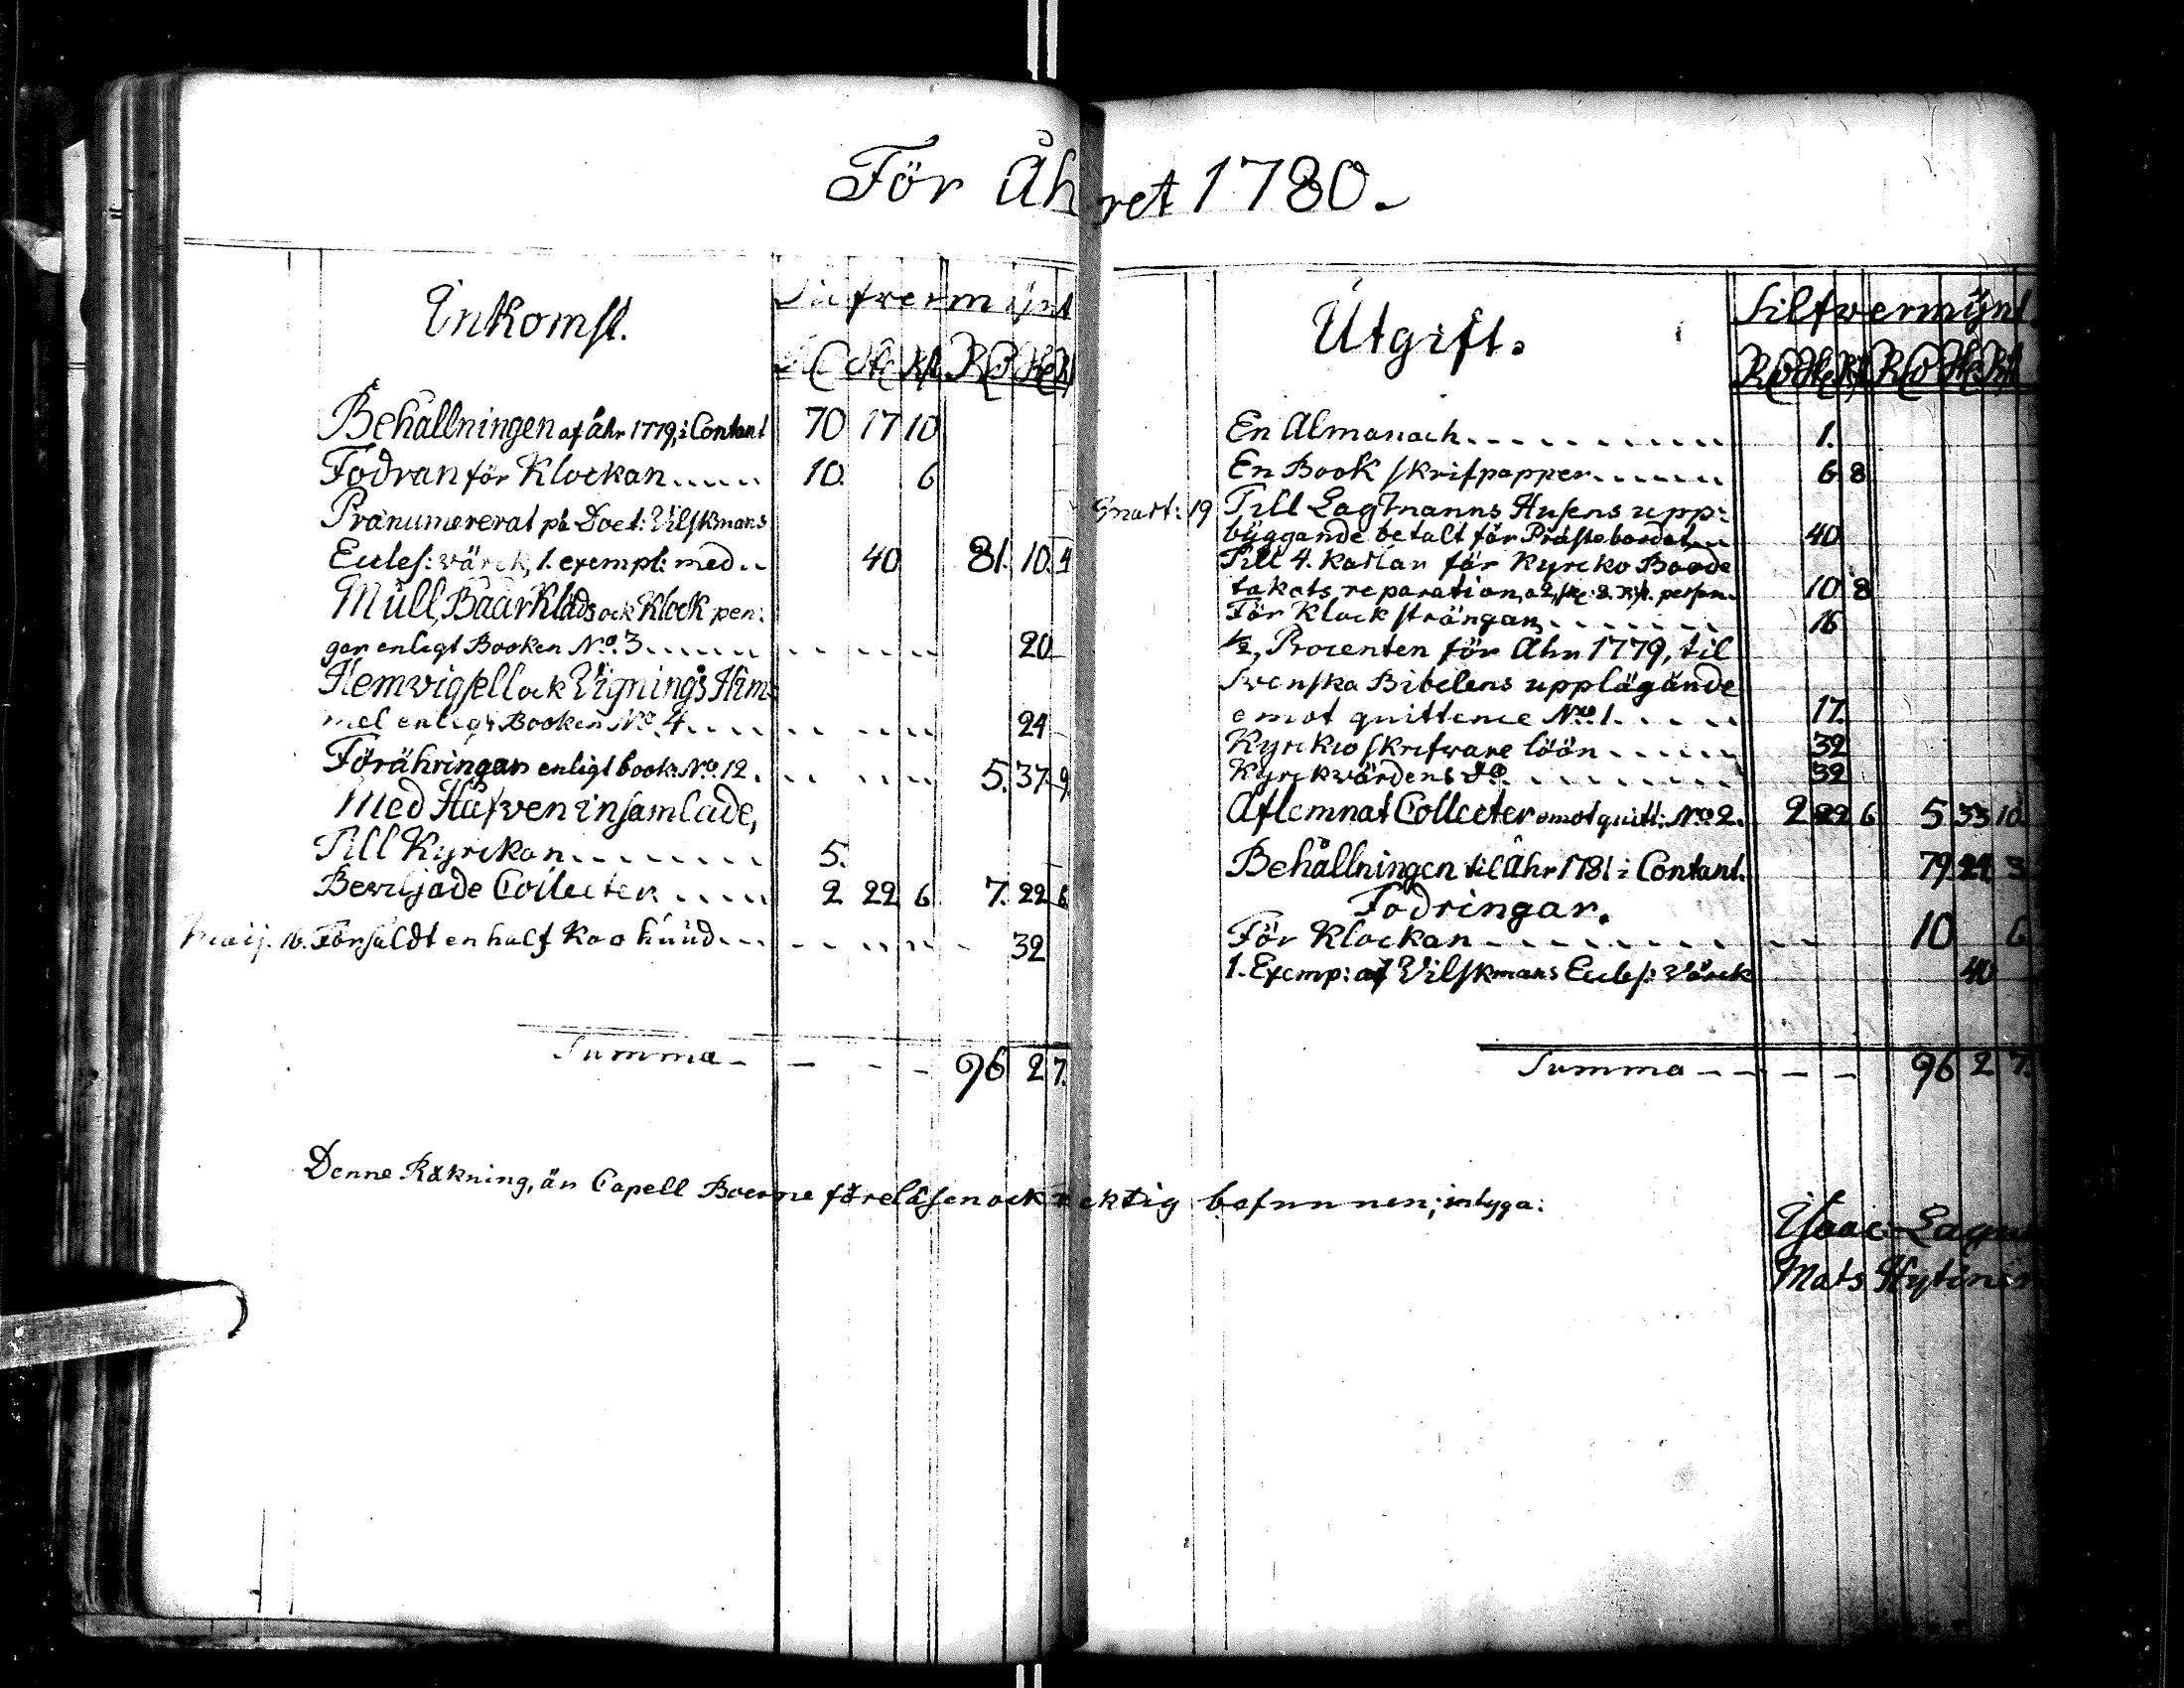 För Åhret 1780.
Inkomst.
Silfvermÿnt
Behållningen af åhr 1779, i Contant 70 17 10
Fodran för Klockan..... 10. 6
Pränumererat på Doct: Vilskmans
Eccles: värck, 1. exempl: med.. 40 81. 10. 4
Mull, Baar Kläds ock Klock pen:
gar enligt Booken No. 3...... 20
Hemvigsell ock Vignings Him:
mel enligt Booken No. 4.... 24
Förähringar enligt book: No. 12. 5. 37. 9
Med Håfven insamlade,
Till Kyrckan........ 5.
Beviljade Collecter..... 2 22 6 7. 22 6
Maij. 16. Försåldt en half Koo huud... 32
Summa - - - - 96 2 7.
Denne Räkning, är Capell Boerne föreläsen ock ricktig befunnen; intyga:
Utgift.
Silfvermÿnt.
En Almanach........... 1.
En Book skrifpapper...... 6 8
19 Till Lagmanns Husens upp:
byggande betalt för Prästebordet... 40
Till 4. Karlar för Kyrcko Boode
takets reparation, a 2, sk: 8. r:st. person. 10 8
För Klock strängar....... 16
1/2, Procenten för Åhr 1779, til
Svenska Bibelens uppläggande
emot quittence Nro. 1...... 17.
Kyrckio skrifvare löön...... 32
Kyrckvärdens do......... 32
Aflemnat Collecter emot quitt: No. 2. 2 22 6 5 33 10
Behållningen til Åhr 1781 i Contant. 79 24 3
Fodringar.
För Klockan - - - - - - 10 6
1. Exemp: af Vilskmans Eccles: värck 40
Summa - - - - 96 2 7.
Isaac
Mats